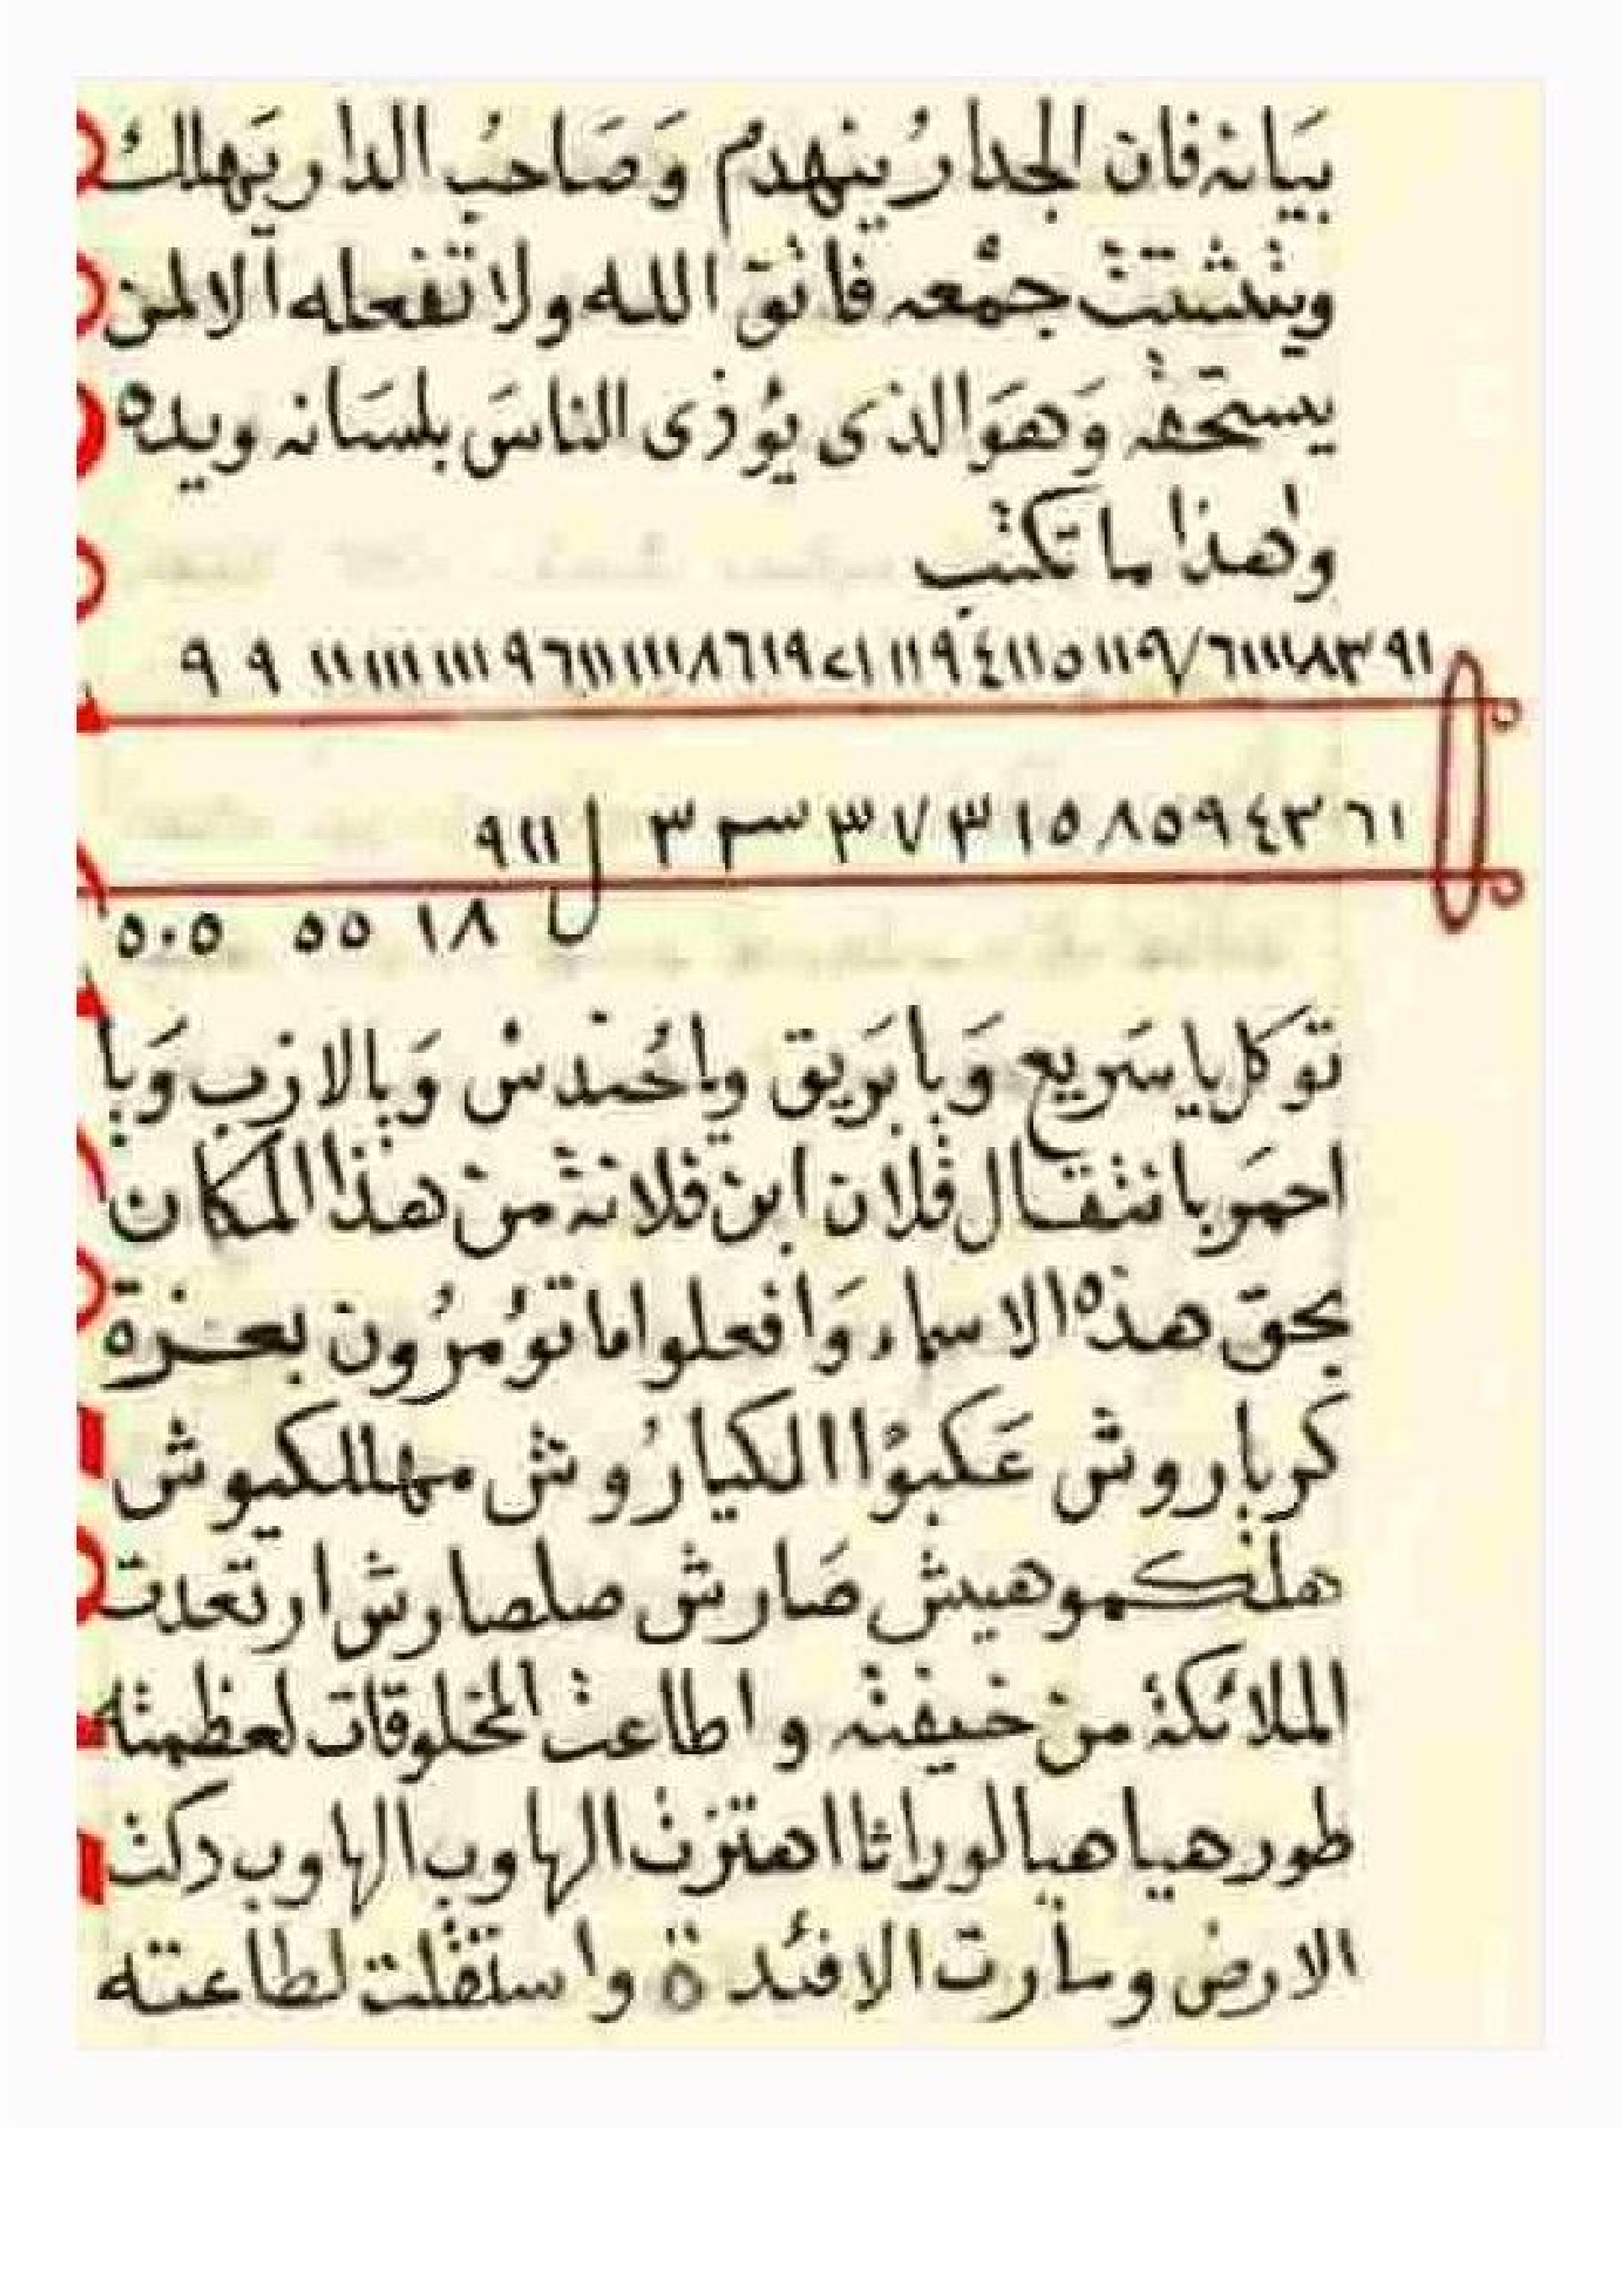 بيانه فان الجدارُ ينهدم وَصَاحبُ الدار يَهلكُ
ويتشتت جمْعه فاتق الله ولا تفعله الا لمن
يستحقه وَهوَ الذى يُوذى الناسَ بلسَانه ويده
وهذا ما تكتب
٩١٣٨١١١١٦٧٩١١٥١١٤٩١١١٢٩١٦٨١١١١١١٦٩١١١١١١١١١ ٩ ٩
٦١ ٣ ٤ ٩ ٥ ٨ ٥ ١ ٣ ٧ ٣ ٣ ل ١١٩
١٨ ٥٥ ٥٠٥
توكل يا سَريع وَيا بَريق وياحُندش وَيا لازب وَيا
احمَر بانتقال فلان ابن فلانة من هذا المكان
بحق هذه الاسماء وَافعلوا ما توُمرُون بعزة
كرياروش عَكبوُا الكيارُوش مهللكيوش
هلكموهيش صَارش صلصارش ارتعدت
الملائكة من خيفته واطاعت المخلوقات لعظمته
طور هيا هيا لوراثا اهتزت الهاوب الهاوب دكت
الارض وسارت الافئدة واستقلت لطاعته